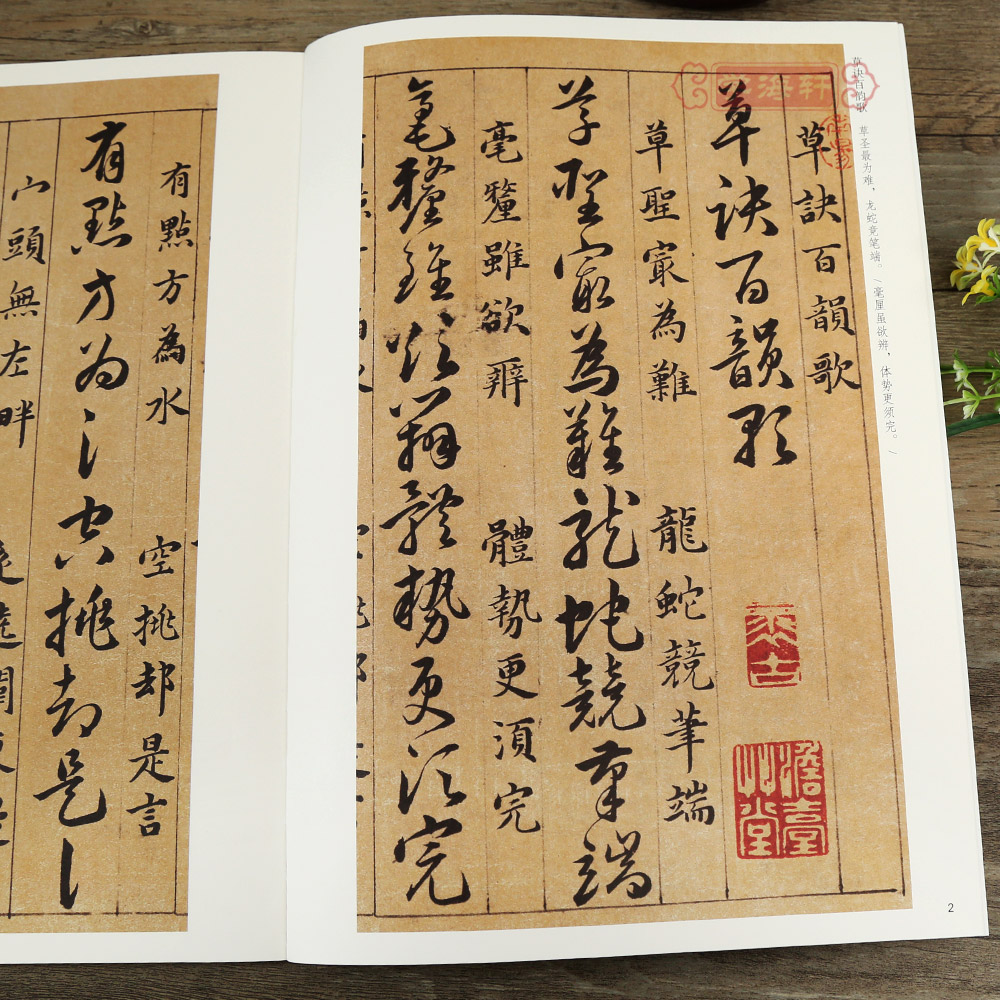 草诀百韵歌 草圣最为难，龙蛇竞笔端。/毫厘虽欲辨，体势更须完。/
草訣百韻歌
草訣百韻歌
草聖㝡為難 龍蛇競筆端
草聖㝡為難龍蛇競筆端
毫釐雖欲辨 體勢更須完
毫釐雖欲辨體勢更須完
2
有點方為水 空挑却是言
有點方為氵空挑却是讠
宀頭無左畔